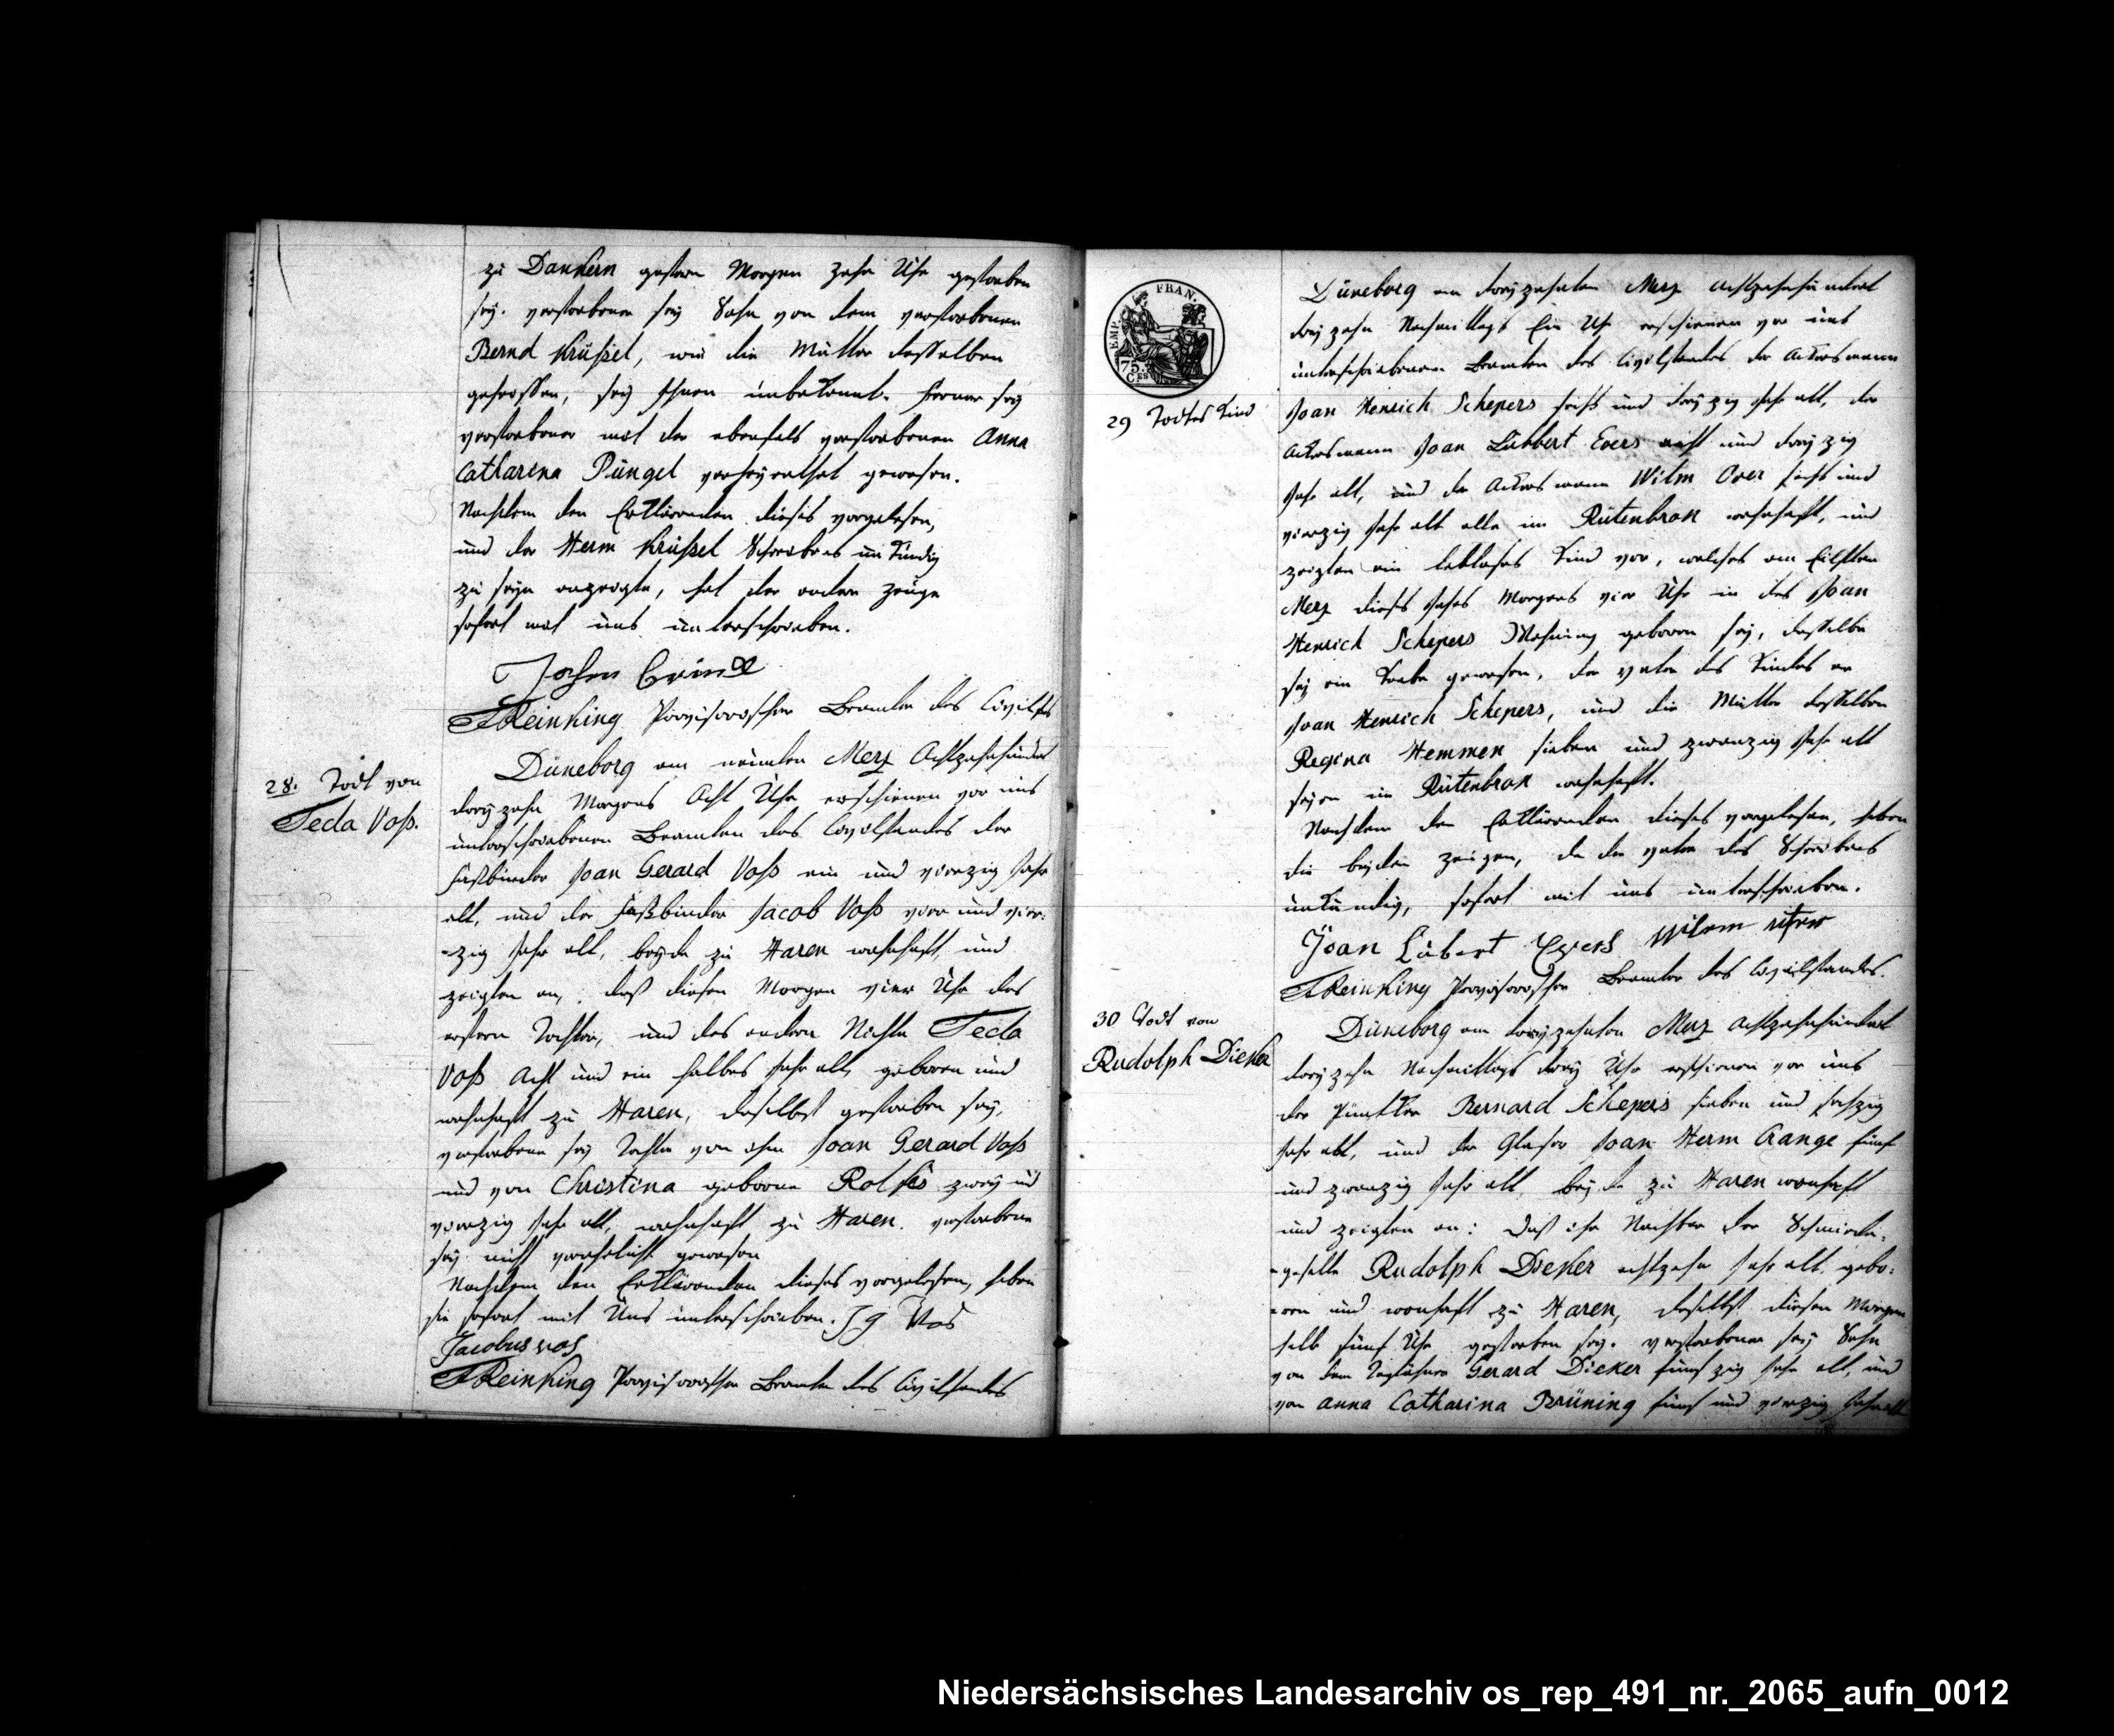 zu Dankern gestern Morgen zehn Uhr gestorben
sey. verstorbener sey Sohn von dem verstorbenen
Bernd Krüßel, wie die Mutter desselben
geheissen, sey ihnen unbekannt. ferner sey
verstorbener mit der ebenfals verstorbenen Anna
Catharina Püngel verheyrathet gewesen.
Nachdem den Erklärenden dieses vorgelesen,
und der Herm Krüßel Schreibens unkundig
zu seyn anzeigte, hat der andere Zeuge
sofort mit uns unterschrieben.
FReinking Provisorischer Beamter des Civilst
28. Todt von
Teda Voß.
Düneborg am neunten Merz Achtzehnhundert
dreyzehn Morgens Acht Uhr erschienen vor uns
unterschriebenen Beamten des Civilstandes der
Faßbinder Joan Gerard Voß ein und vierzig Jahr
alt, und der Faßbinder Jacob Voß vier und vier-
-zig Jahr alt, beyde zu Haren wohnhaft, und
zeigten an, daß diesen Morgen vier Uhr des
erstern Tochter, und des andern Nichte Teda
Voß Acht und ein halbes Jahr alt, geboren und
wohnhaft zu Haren, daselbst gestorben sey,
verstorbene sey Tochter von ihm Joan Gerard Voß
und von Christina geborne Rolfes zwey und
vierzig Jahr alt, wohnhaft zu Haren. verstorbene
sey nicht verehelicht gewesen
Nachdem den Erklärenden dieses vorgelesen, haben
sie sofort mit Uns unterschrieben. J G Vos
Jacobus vos
FReinking Provisorischer Beamter des Civilstandes
EMP. FRAN.
75. Ces
29 Todtes Kind
Düneborg am dreyzehnten Merz achtzehnhundert
dreyzehn Nachmittags Ein Uhr erschienen vor uns
unterschriebenen Beamten des Civilstandes der Ackersmann
Joan Henrich Schepers sechs und dreyzig Jahr alt, der
Ackersmann Joan Lübbert Evers acht und dreyzig
Jahr alt, und der Ackersmann Wilm Over sechs und
vierzig Jahr alt alle im Rütenbrok wohnhaft, und
zeigten ein lebloses Kind vor, welches am Eilften
Merz dieses Jahrs Morgens vier Uhr in des Joan
Henrich Schepers Wohnung geboren sey, dasselbe
sey ein Knabe gewesen, der Vater des Kindes er
Joan Henrich Schepers, und die Mutter desselben
Regina Hemmen sieben und zwanzig Jahr alt
seyen im Rütenbrok wohnhaft.
Nachdem den Erklärenden dieses vorgelesen, haben
die beyden Zeugen, da der Vater des Schreibens
unkundig, sofort mit uns unterschrieben.
Joan Lübert Evers Wilem
FReinking Provisorischer Beamter des Civilstandes.
30 Todt von
Rudolph Dieker
Düneborg am dreyzehnten Merz Achtzehnhundert
dreyzehn Nachmittags drey Uhr erschienen vor uns
der Bernard Schepers sieben und sechzig
Jahr alt, und der Glaser Joan Herm Crange fünf
und zwanzig Jahr alt, beyde zu Haren wonhaft
und zeigten an: daß ihr Nachbar der Schmiede-
-geselle Rudolph Dieker achtzehn Jahr alt gebo-
-ren und wonhaft zu Haren, daselbst diesen Morgen
halb fünf Uhr gestorben sey. verstorbener sey Sohn
von dem Taglöhner Gerard Dieker fünfzig Jahr alt, und
von Anna Catharina Brüning fünf und vierzig Jahr alt
Niedersächsisches Landesarchiv os_rep_491_nr._2065_aufn_0012